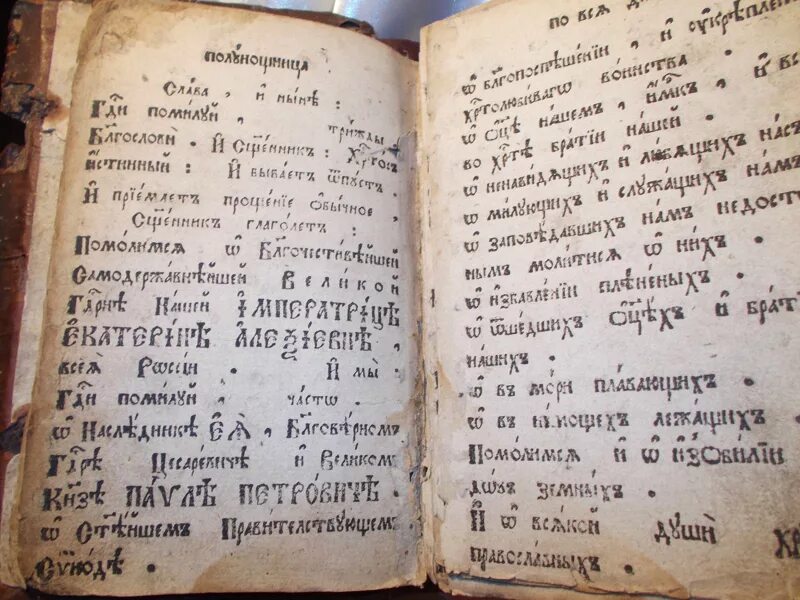 полꙋнощница
Сла́ва , и҆ ны́нѣ :
Гдⷭ҇и поми́лꙋй , три́жды .
Блг҃ослови́ . И҆ Сщ҃е́нникъ : Хрⷭ҇то́съ
и҆́стинный : И҆ быва́етъ ѿпꙋ́стъ .
И҆ прїе́млетъ проще́нїе ѻ҆бы́чное ,
Сщ҃е́нникъ глаго́летъ :
Помо́лимсѧ ѡ҆ Блг҃очести́вѣйшей
Самодержа́внѣйшей Вели́кой
Гдⷭ҇рнѣ На́шей И҆мператри́цѣ
Е҆катери́нѣ А҆леѯі́евнѣ ,
всеѧ̀ Рѡссі́и . И҆ мы̀ :
Гдⷭ҇и поми́лꙋй , ча́стѡ .
ѡ҆ Наслѣ́дникѣ Е҆ѧ̀ , Благовѣ́рномъ
Гдⷭ҇рѣ Цесаре́вичѣ и҆ Вели́комъ
Кнѧ҃зѣ Па́ѵлѣ Петро́вичѣ .
ѡ҆ Ст҃ѣ́йшемъ Прави́телствꙋющемъ
Сѵно́дѣ .
по всѧ
ѡ҆ благопоспѣше́нїи , и҆ ᲂу҆крѣпле́нїи
хрⷭ҇толюби́вагѡ во́инства .
ѡ҆ ѻ҆ц҃ѣ̀ на́шемъ , и҆́мⷬ҇къ , и҆ всей
во хрⷭ҇тѣ̀ бра́тїи на́шей .
ѡ҆ ненави́дѧщихъ и҆ лю́бѧщихъ на́съ
ѡ҆ ми́лꙋющихъ и҆ слꙋжа́щихъ на́мъ
ѡ҆ заповѣ́давшихъ на́мъ недосто
нымъ моли́тисѧ ѡ҆ ни́хъ .
ѡ҆ и҆збавле́нїи плѣне́ныхъ .
ѡ҆ ѿше́дшихъ ѻ҆ц҃ѣ́хъ и҆ бра́т
на́шихъ .
ѡ҆ въ мо́ри пла́вающихъ .
ѡ҆ въ не́мощехъ лежа́щихъ
Помо́лимсѧ и҆ ѡ҆ и҆з̾ѻби́лїи
плодѡ́въ земны́хъ .
И҆ ѡ҆ всѧ́кой дꙋшѝ хр
правосла́вныхъ .